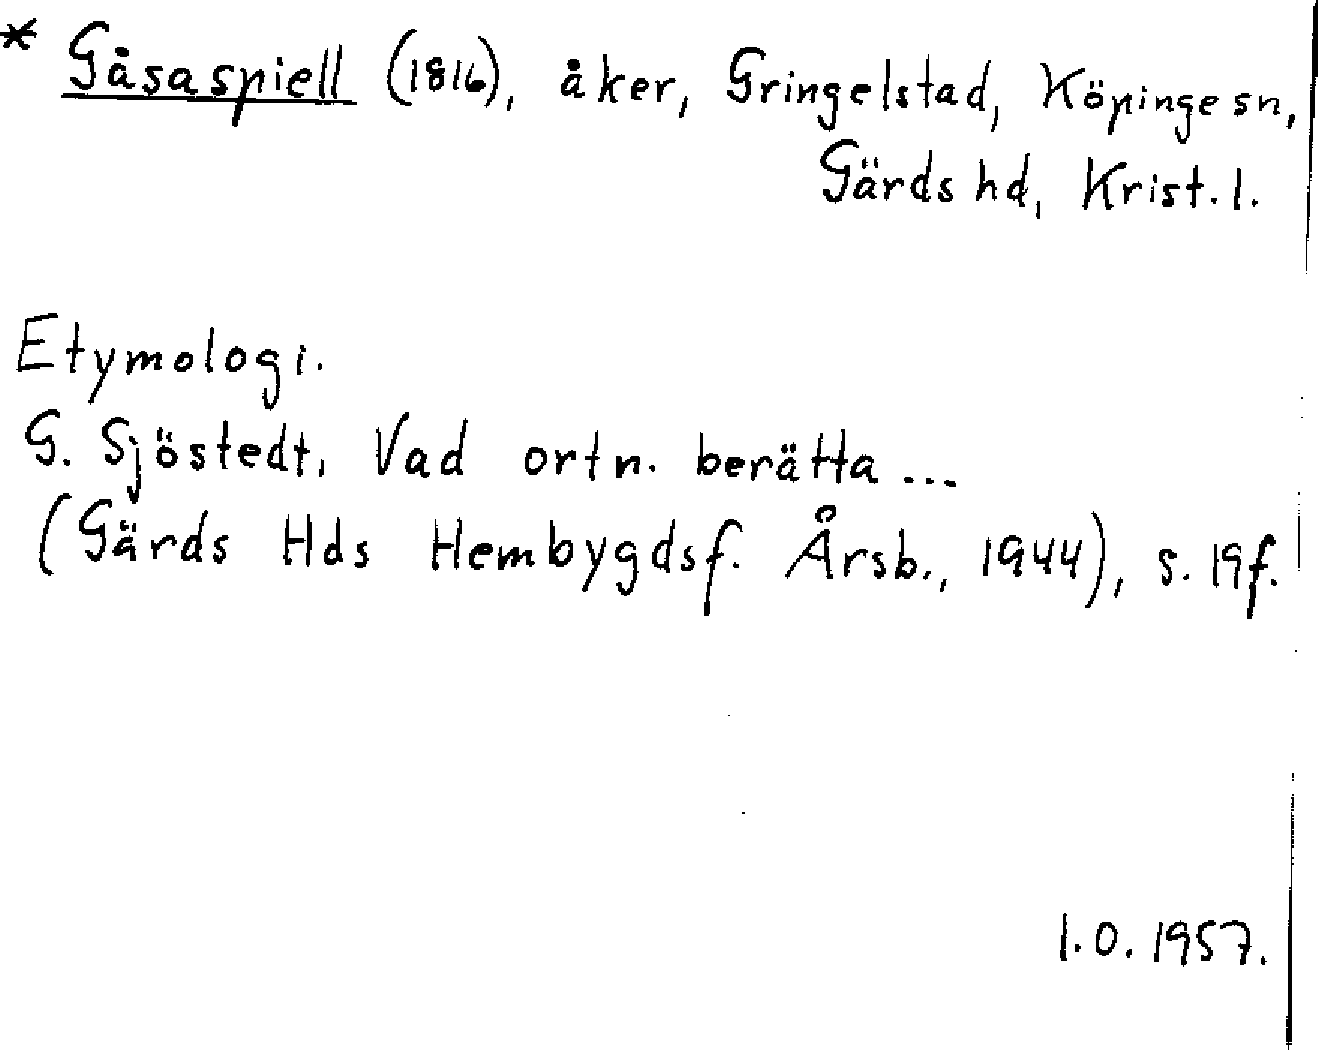 * Gåsaspiell (1816), åker, Gringelstad, Köpinge sn,
Gärds hd, Krist. l.
Etymologi.
G. Sjöstedt, Vad ortn. berätta ...
(Gärds Hds Hembygdsf. Årsb., 1944), s. 19f.
I.O. 1957.